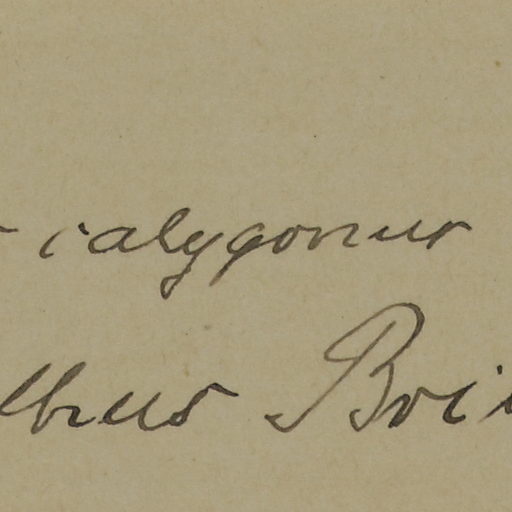 calygonus
lbus Boi